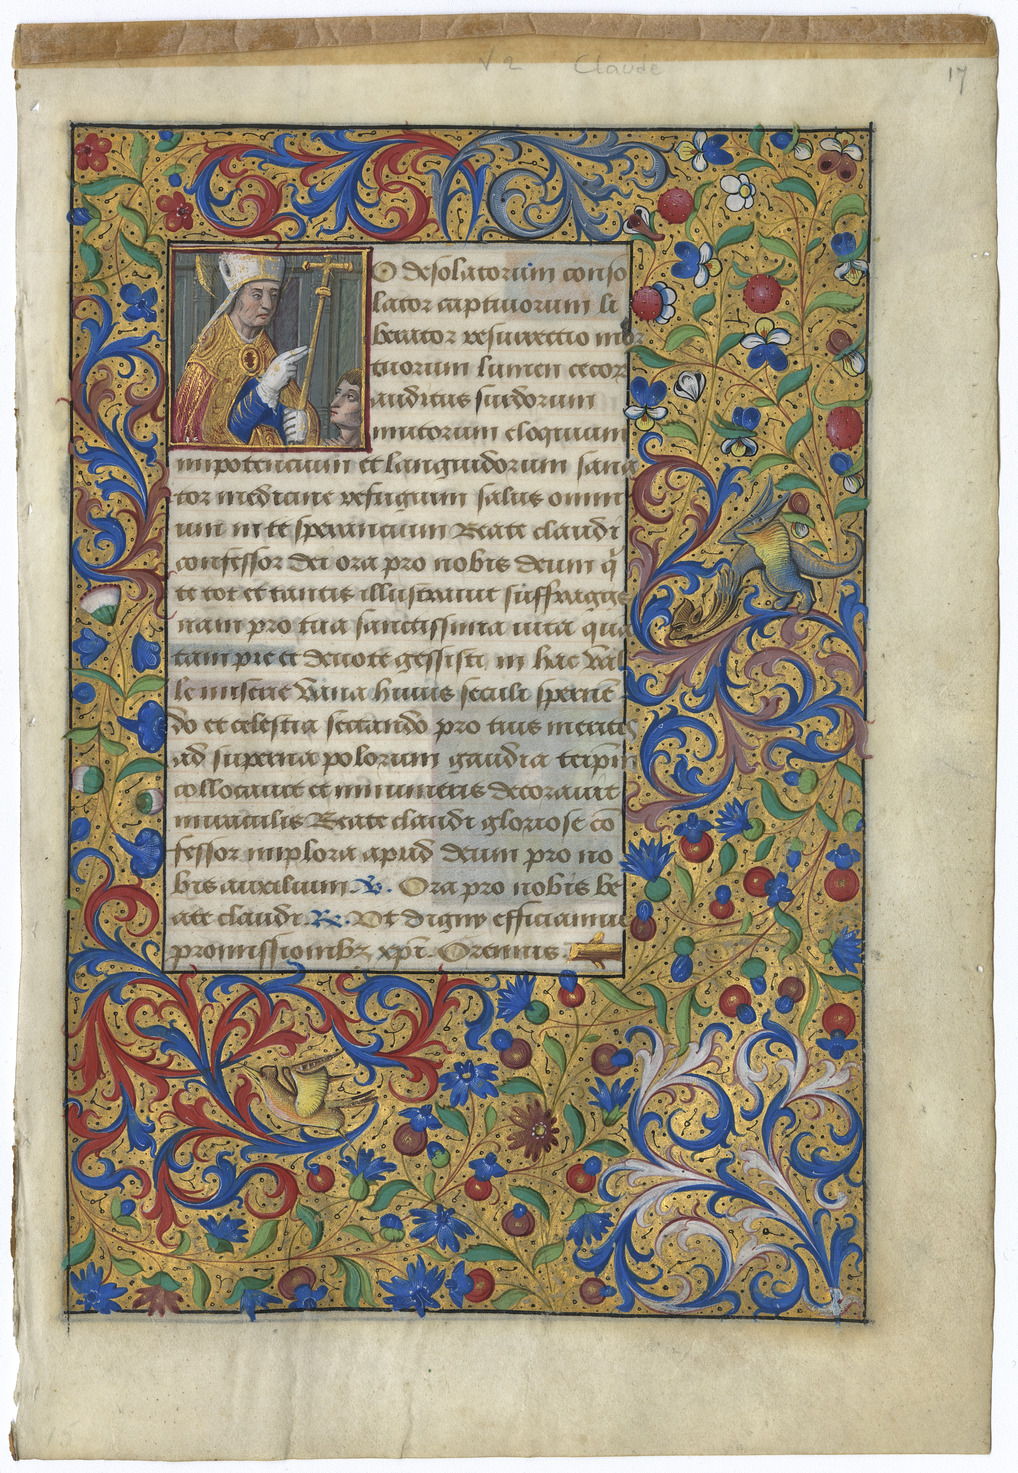 V 2 Claude
17
O desolatorum conso
lator captiuorum li
berator resurrectio mor
tuorum lumen cecor
auditus surdorum
mutorum eloquium
impotencium et languidorum sana
tor medicine refugium salus omni
um in te sperancium Beate claudi
confessor dei ora pro nobis deum q̇
te tot et tantis illustrauit suffragijs
nam pro tua sanctissima uita qua
tam pie et deuote gessisti in hac val
le miserie vana huius seculi sperne
do et celestia sectando pro tuis meritis
ad superna polorum gaudia te
collocauit et innumeris decorauit
miraculis Beate claudi gloriose co
fessor implora apud deum pro no
bis auxilium. V. Ora pro nobis be
ate claudi. R. Vt digny efficiamur
promissionibꝫ xpī. Oremus.